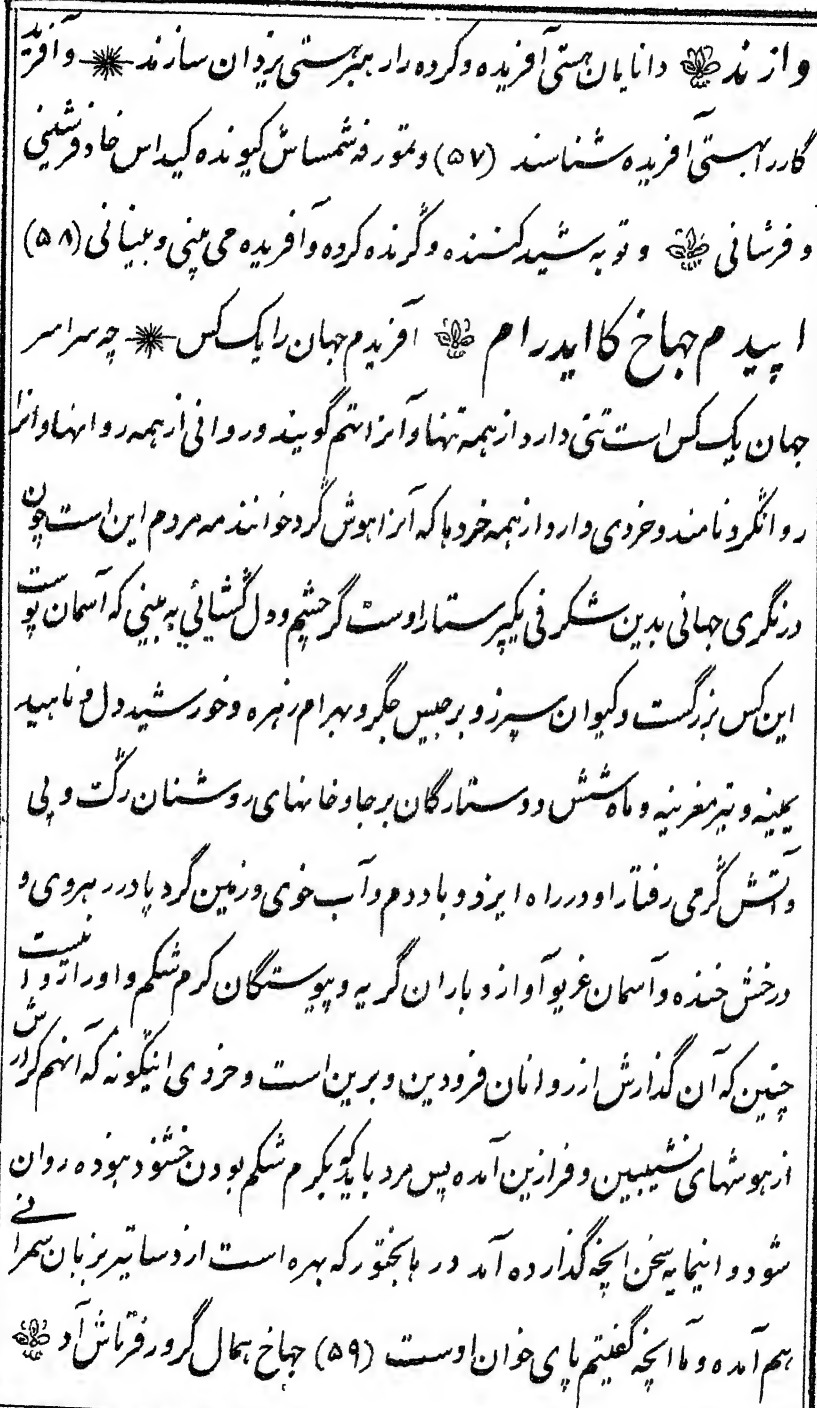 وازند دانایان هستی آفریده و کرده را رهبر هستی یزدان سازند و آفریده
گار را بهستی آفریده شناسند (۵۷) و تمورفه شمساش کیونده کیداس خاد و فرشینی
و فرشانی و تو به شید کننده و گرنده کرده و آفریده می بینی و بینانی (۵۸)
اپیدم جهاخ کا ایدرام آفریدم جهان را یک کس چه سراسر
جهان یک کس است تنی دارد از همه تنها و آنرا تهم گویند و روانی از همه روانها و آنرا
روانگرد نامند و خردی دارد از همه خردها که آنرا هوش گرد خوانند مه مردم این است چون
درنگری جهانی بدین شگرفی یکپرستار اوست گر چشم و دل گشائی به بینی که آسمان پوست
این کس بزرگست و کیوان سپرز و برجیس جگر و بهرام زهره و خورشید دل و ناهید
یمینه و تیر مغزینه و ماه شش و دو ستارگان برجا و خانهای روشنان رگ و پی
و آتش گرمی رفتار او در راه ایزد و باد دم و آب خوی و زمین گرد پا در رهروی و
درخش خنده و آسمان غریو آواز و باران گریه و پیوستگان کرم شکم و او را روانیست
چنین که آن گذارش از روانان فرودین و برین است و خردی اینگونه که آنهم گردارش
از هوشهای نشیبین و فرازین آمده پس مرد باید که بکرم شکم بودن خشنود نبوده روان
شود و اینمایه سخن ایچه گذارده آمد در بابختور که بهره است از دساتیر بزبان سمرانی
بهم آمده و ما آنچه گفتیم پای خوان اوست (۵۹) جهاخ همال گرور فرتاش آد